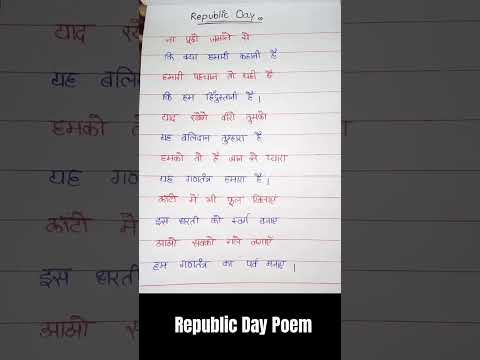 Republic Day
ना पूछो जमाने से
कि क्या हमारी कहानी है
हमारी पहचान तो यही है
कि हम हिंदुस्तानी है।
याद रखेंगे वीरो तुमको
यह बलिदान तुम्हारा है
हमको तो है जान से प्यारा
यह गणतंत्र हमारा है।
काँटो में भी फूल खिलाएँ
इस धरती को स्वर्ग बनाए
आओ सबको गले लगाएँ
हम गणतंत्र का पर्व मनाए।
याद रखेंगे
यह बलिदान
हमको तो
यह गणतंत्र
काँटो में
इस धरती
आओ
Republic Day Poem